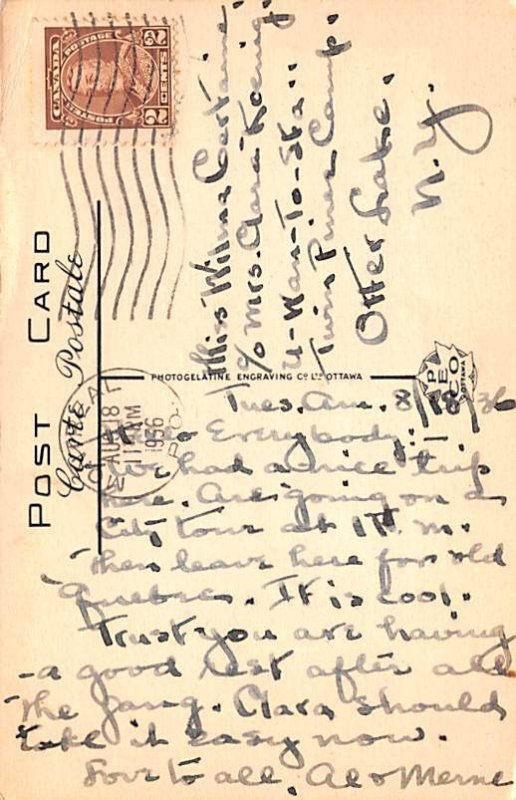 CANADA
POSTAGE POSTES
2 CENTS 2
POST CARD
Carte Postale
MONTREAL
AU 18
11 AM
1936
P.Q.
PHOTOGELATINE ENGRAVING Co. LTD. OTTAWA
PECO
OTTAWA
Miss Wilma
c/o Mrs. Clara Koenig.
U-Wan-To-Sta
Twin Pines Camp.
Otter Lake.
N.Y.
Tues. Am. 8/18/36
Everybody:
We had a nice trip
here. Are going on a
City tour at 1 P.M.
then leave here for old
Quebec. It is cool.
Trust you are having
a good rest after all
the gang. Clara should
take it easy now.
Love to all. Al & Merne